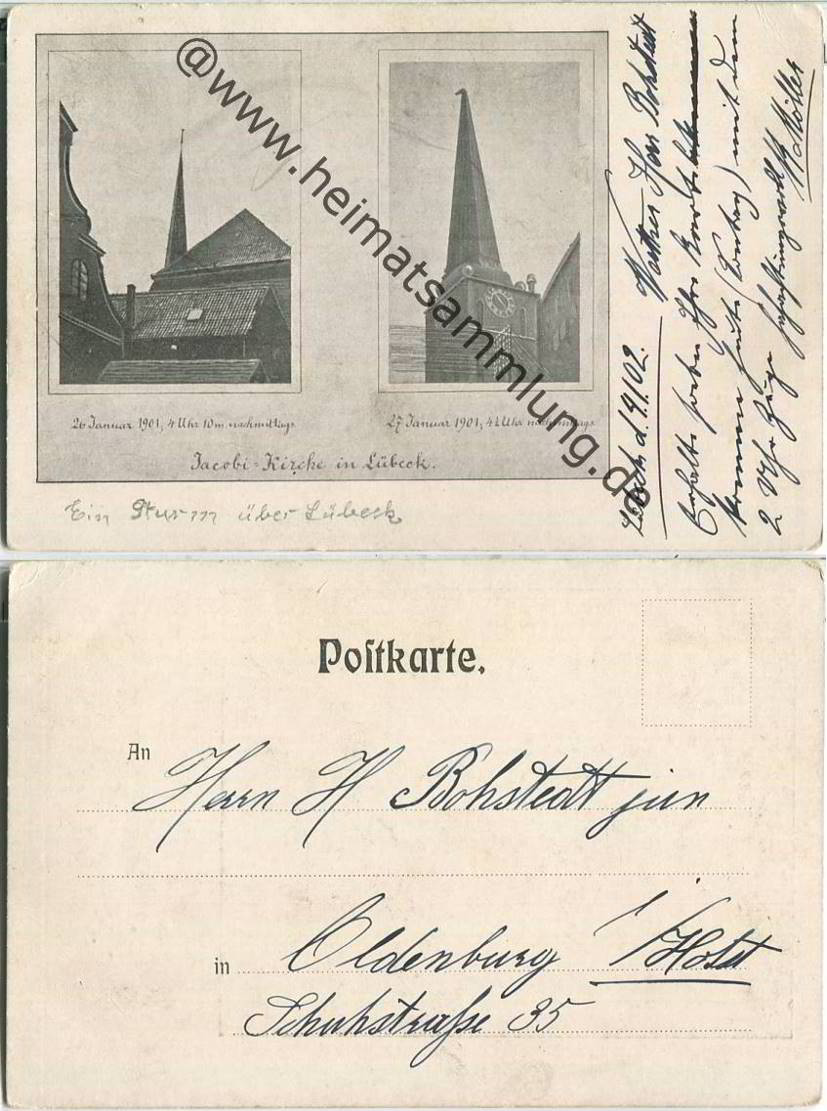 26 Januar 1901, 4 Uhr 10 m. nachmittags
27 Januar 1901, 4¼ Uhr nachmittags
Jacobi-Kirche in Lübeck.
Ein Sturm über Lübeck
@www.heimatsammlung.de
Lübeck d. 19.1.02.
Herr Bohstedt
Erhalte soeben Ihre Karte
kommen heute (Sonntag) mit dem
2 Uhr Zuge
Poſtkarte.
An Herrn H Bohstedt jun
in Oldenburg i/Holst
Schuhstraſse 35